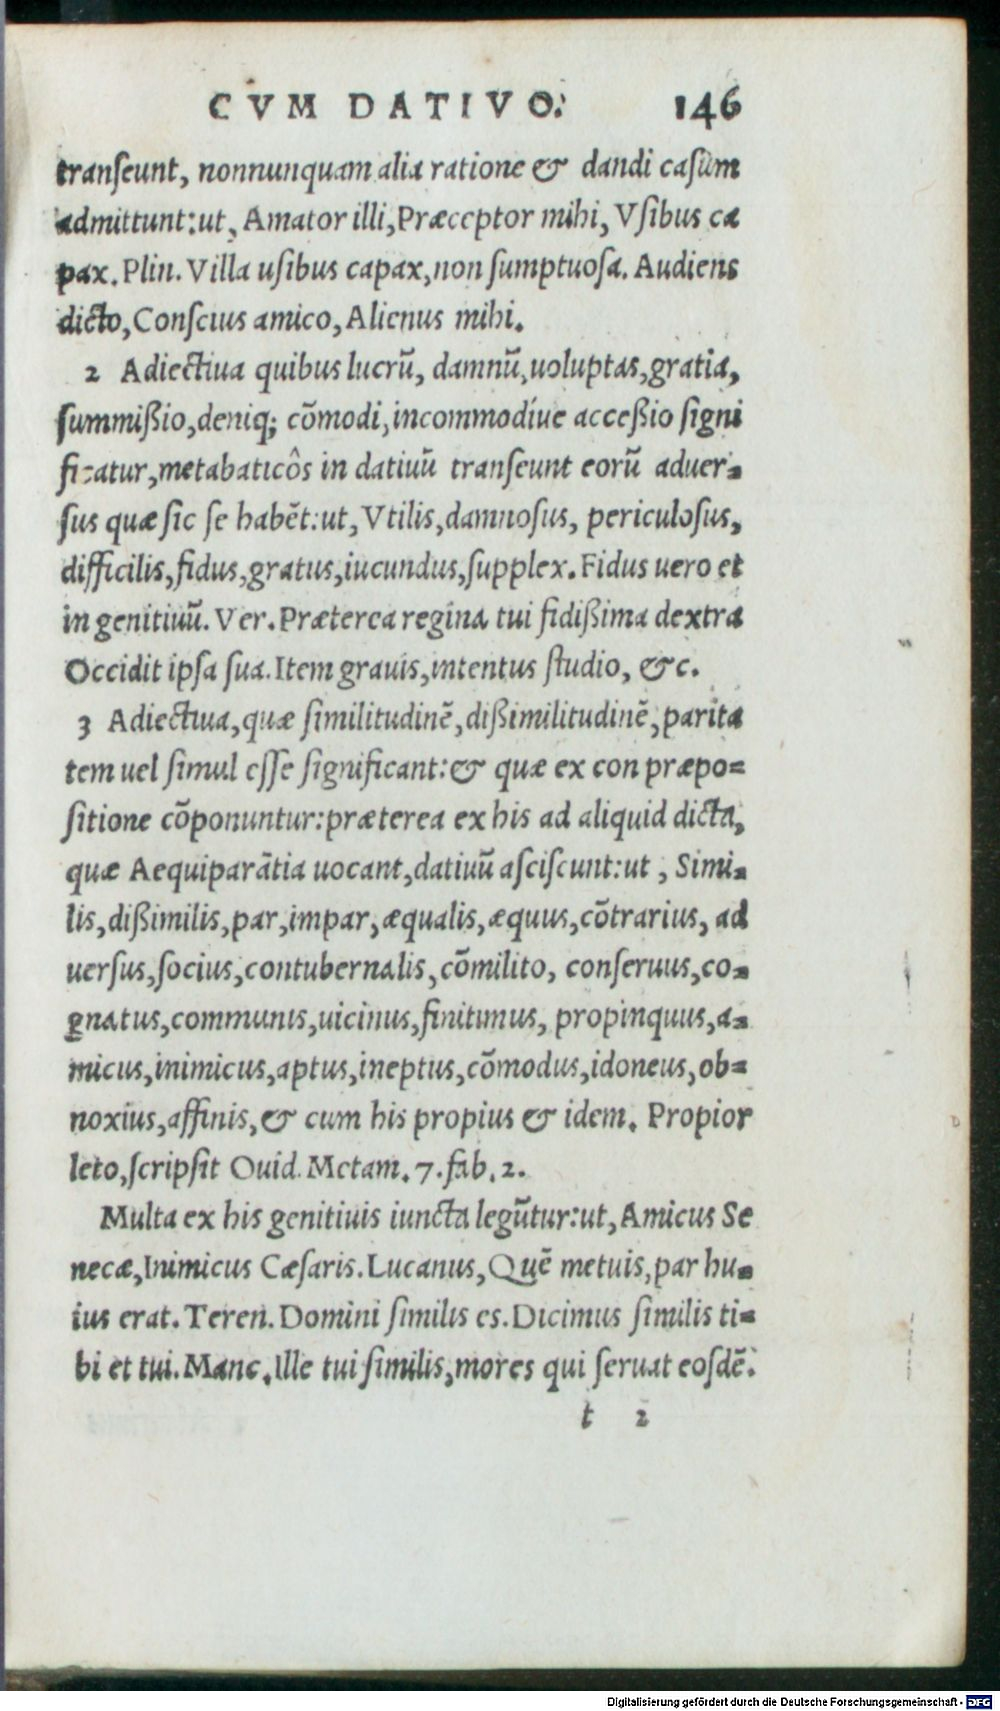 CVM DATIVO. 146
tranſeunt, nonnunquam alia ratione & dandi caſum
admittunt:ut, Amator illi,Præceptor mihi, Vſibus ca
pax. Plin. Villa uſibus capax,non ſumptuoſa. Audiens
dicto,Conſcius amico,Alienus mihi.
2 Adiectiua quibus lucrū, damnū,uoluptas,gratia,
ſummißio,deniq; cōmodi,incommodíue acceßio ſigni
ficatur,metabaticôs in datiuū tranſeunt eorū aduer-
ſus quæ ſic ſe habēt:ut, Vtilis,damnoſus, periculoſus,
difficilis,fidus,gratus,iucundus,ſupplex. Fidus uero et
in genitiuū. Ver. Præterea regina tui fidißima dextra
Occidit ipſa ſua. Item grauis,intentus ſtudio, &c.
3 Adiectiua,quæ ſimilitudinē,dißimilitudinē,parita
tem uel ſimul eſſe ſignificant:& quæ ex con præpo-
ſitione cōponuntur:præterea ex his ad aliquid dicta,
quæ Aequiparātia uocant,datiuū aſciſcunt:ut , Simi-
lis,dißimilis,par,impar,æqualis,æquus,cōtrarius, ad
uerſus,ſocius,contubernalis,cōmilito, conſeruus,co-
gnatus,communis,uicinus,finitimus, propinquus,a-
micus,inimicus,aptus,ineptus,cōmodus,idoneus,ob-
noxius,affinis,& cum his propius & idem. Propior
leto,ſcripſit Ouid. Metam. 7. fab. 2.
Multa ex his genitiuis iuncta legūtur:ut,Amicus Se
necæ,Inimicus Cæſaris. Lucanus,Quē metuis,par hu-
ius erat. Teren. Domini ſimilis es. Dicimus ſimilis ti-
bi et tui. Manc. Ille tui ſimilis,mores qui ſeruat eoſdē.
t 2
Digitalisierung gefördert durch die Deutsche Forschungsgemeinschaft - DFG